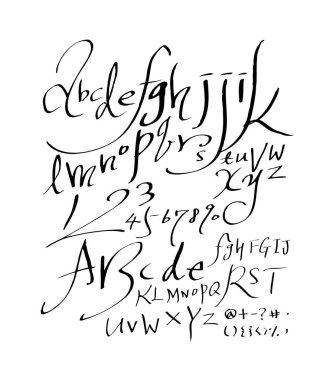 abcdefghijjk
lmnopqrstuvw
xyz
1234567890
ABcde fgh FGIJ
KLMNOPQ RST
UVWXYZ @+-?#.